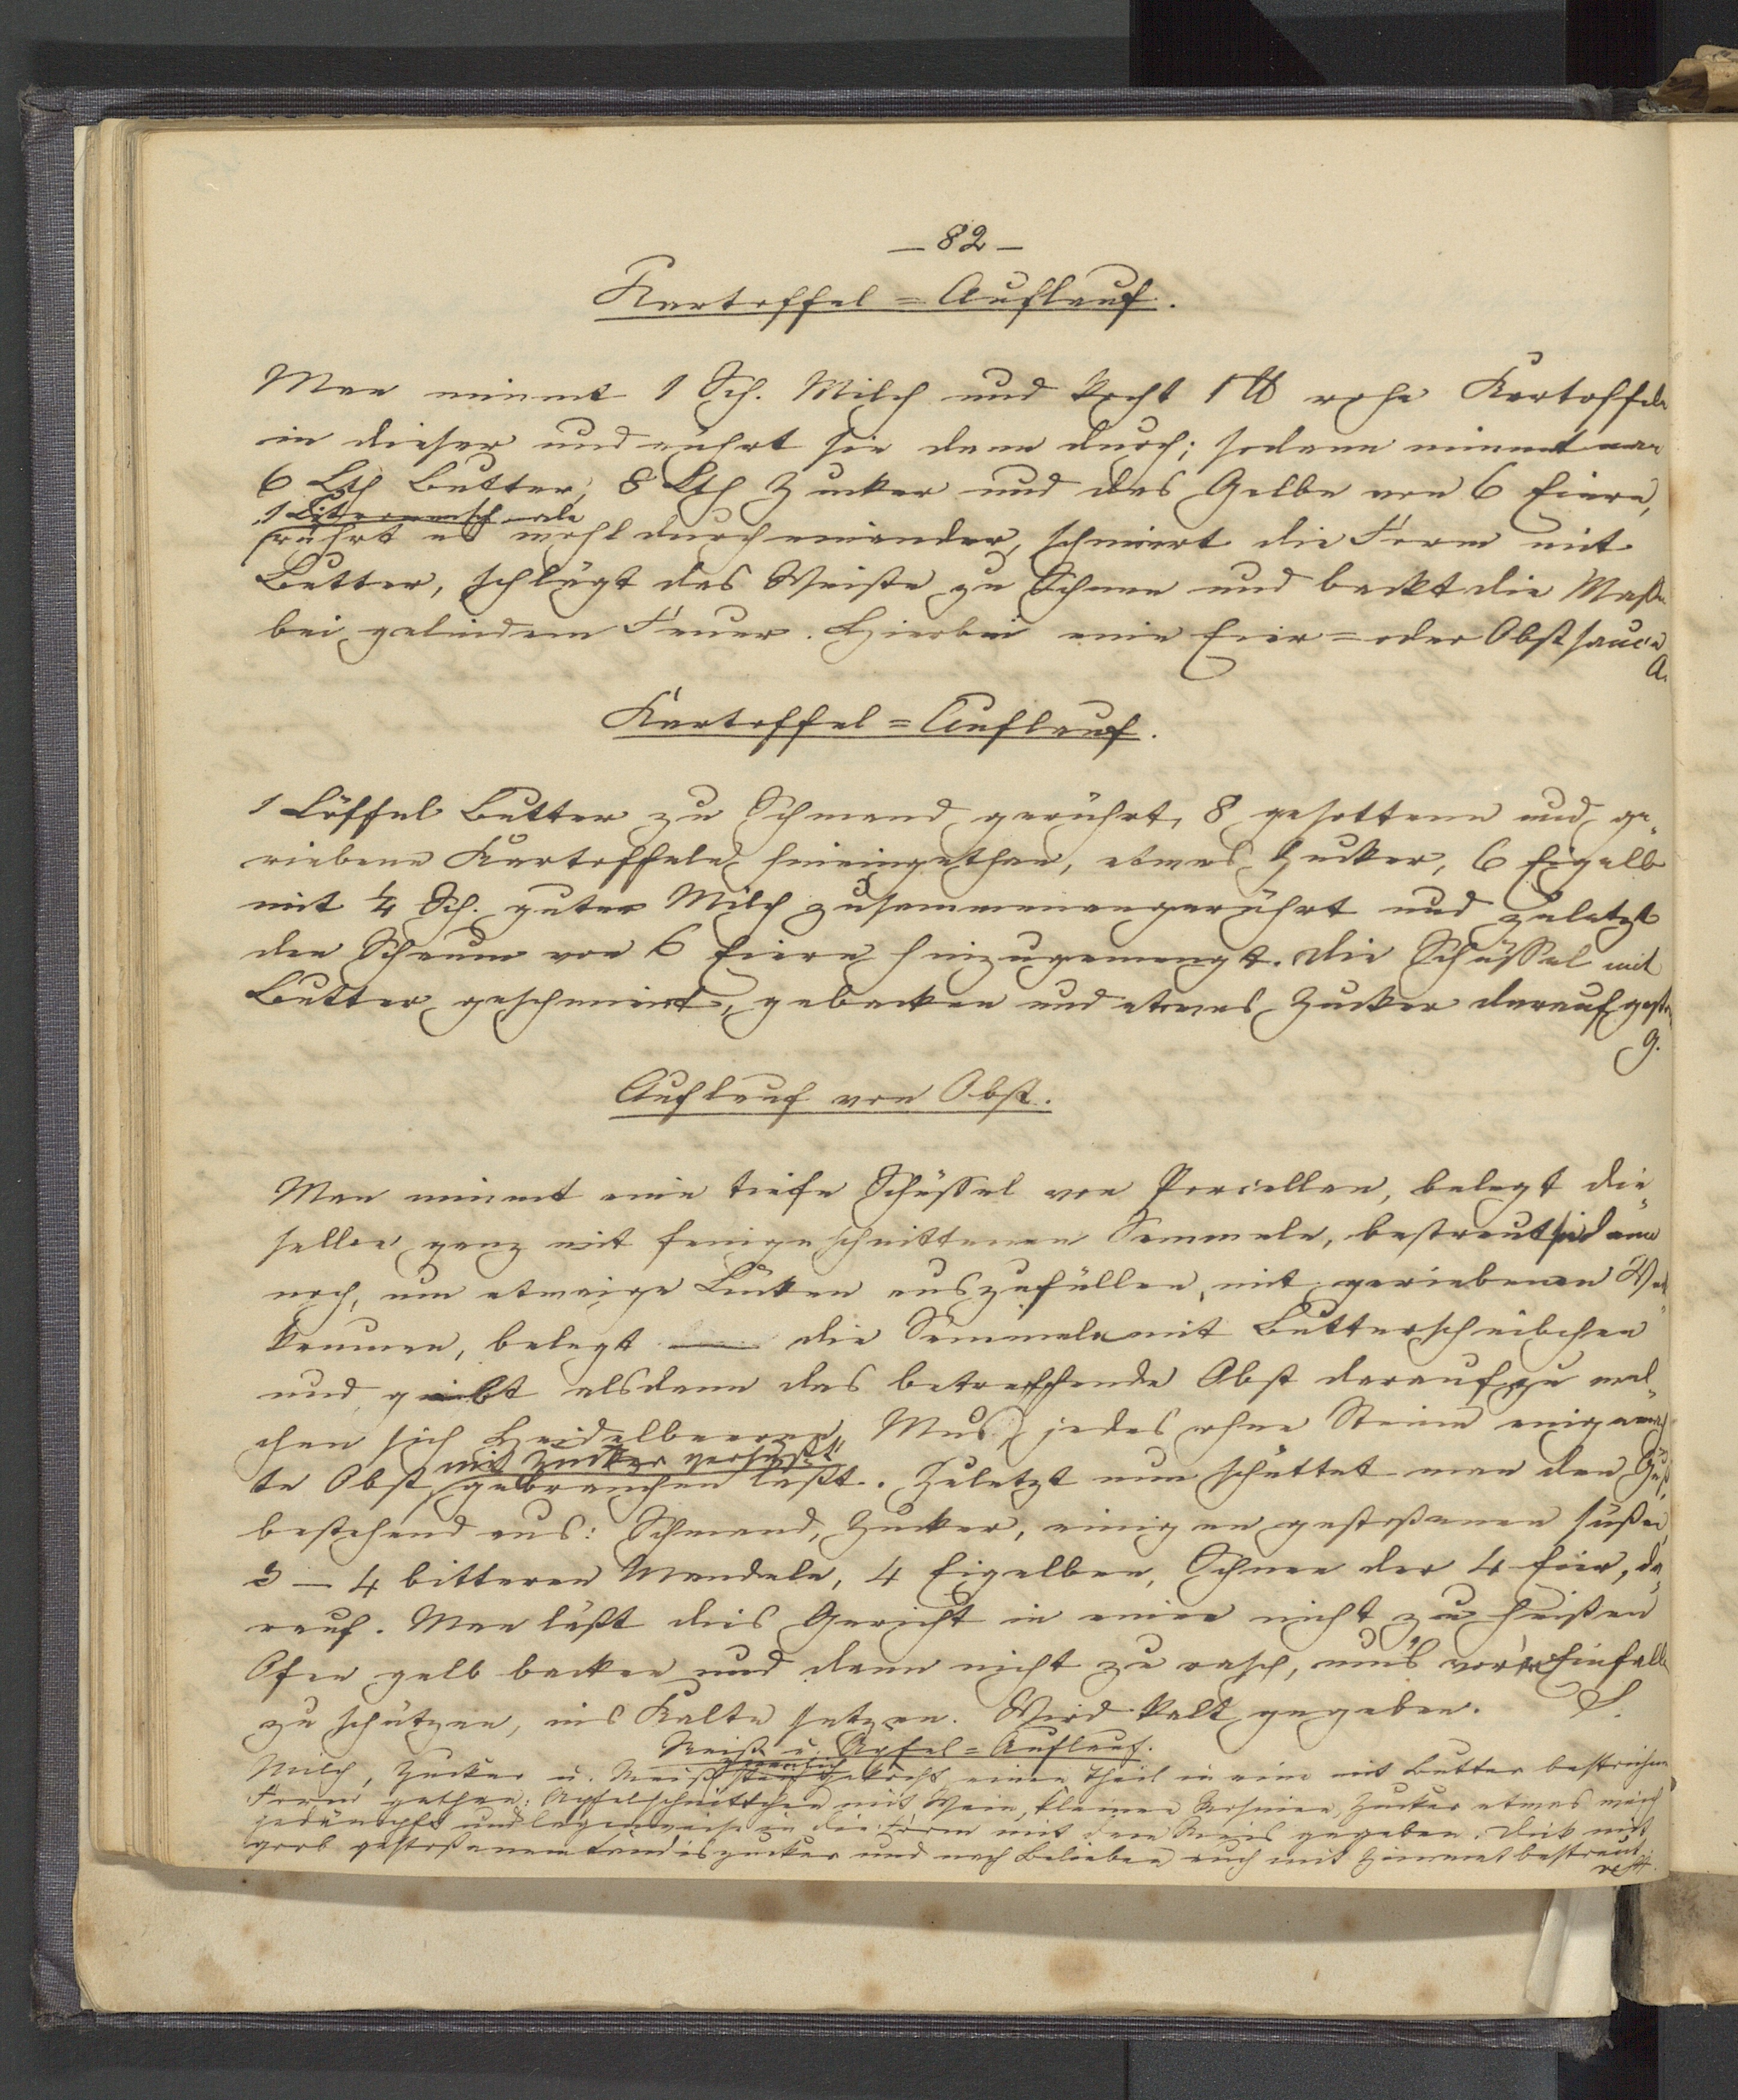 — 82 —
Kartoffel = Auflauf.
Man nimmt 1 Sch. Milch und kocht 1 ℔ rohe Kartoffeln
in dieser und rührt sie dann durch; sodann nimmt man
6 Lth Butter, 8 Lth Zucker und das Gelbe von 6 Eiern,
rührt es wohl durcheinander, schmiert die Form mit
Butter, schlägt das Weiße zu Schnee und backt die Maße
bei gelindem Feuer. Hierbei eine Eier = oder Obstsauce
A.
Kartoffel = Auflauf.
1 Löffel Butter zu Schmand gerührt, 8 gesottene und ge„
riebene Kartoffeln hineingethan, etwas Zucker, 6 Eigelb
mit ¼ Sch. guter Milch zusammengerührt und zuletzt
den Schaum von 6 Eiern hinzugemengt. Die Schüssel mit
Butter geschmiert, gebacken und etwas Zucker darauf
G.
Auflauf von Obst.
Man nimmt eine tiefe Schüssel von Porcellan, belegt die„
selbe ganz mit feingeschnittenen Semmeln, bestreut sie dann
noch, um etwaige Lücken auszufüllen, mit geriebenen
krumen, belegt die Semmeln mit Butterscheibchen
und giebt alsdann das betreffende Obst darauf zu wel„
chem sich Heidelbeeren, Mus, jedes ohne Steine eingemach
te Obst, mit Zucker versüßt gebrauchen läßt. Zuletzt nun schüttet man den Guß,
bestehend aus: Schmand, Zucker, einigen gestoßenen süßen
3 — 4 bitteren Mandeln, 4 Eigelben, Schnee der 4 Eier, da„
rauf. Man läßt dies Gericht in einem nicht zu heißen
Ofen gelb backen und dann nicht zu rasch, um's vor'm Einfallen
zu schützen, ins Kalte setzen. Wird kalt gegeben. S.
Reiß u. Äpfel = Auflauf.
Milch, Zucker u. Reiß ziemlich steif gekocht, einen Theil in eine mit Butter bestrichene
Form gethan; Apfelschnittchen mit Wein, kleinen Rosinen, Zucker etwas weich
gedämpft und lagenweise in die Form mit dem Reis gegeben. Dick mit
grob gestoßenem Candiszucker und nach Belieben auch mit Zimmet bestreut.